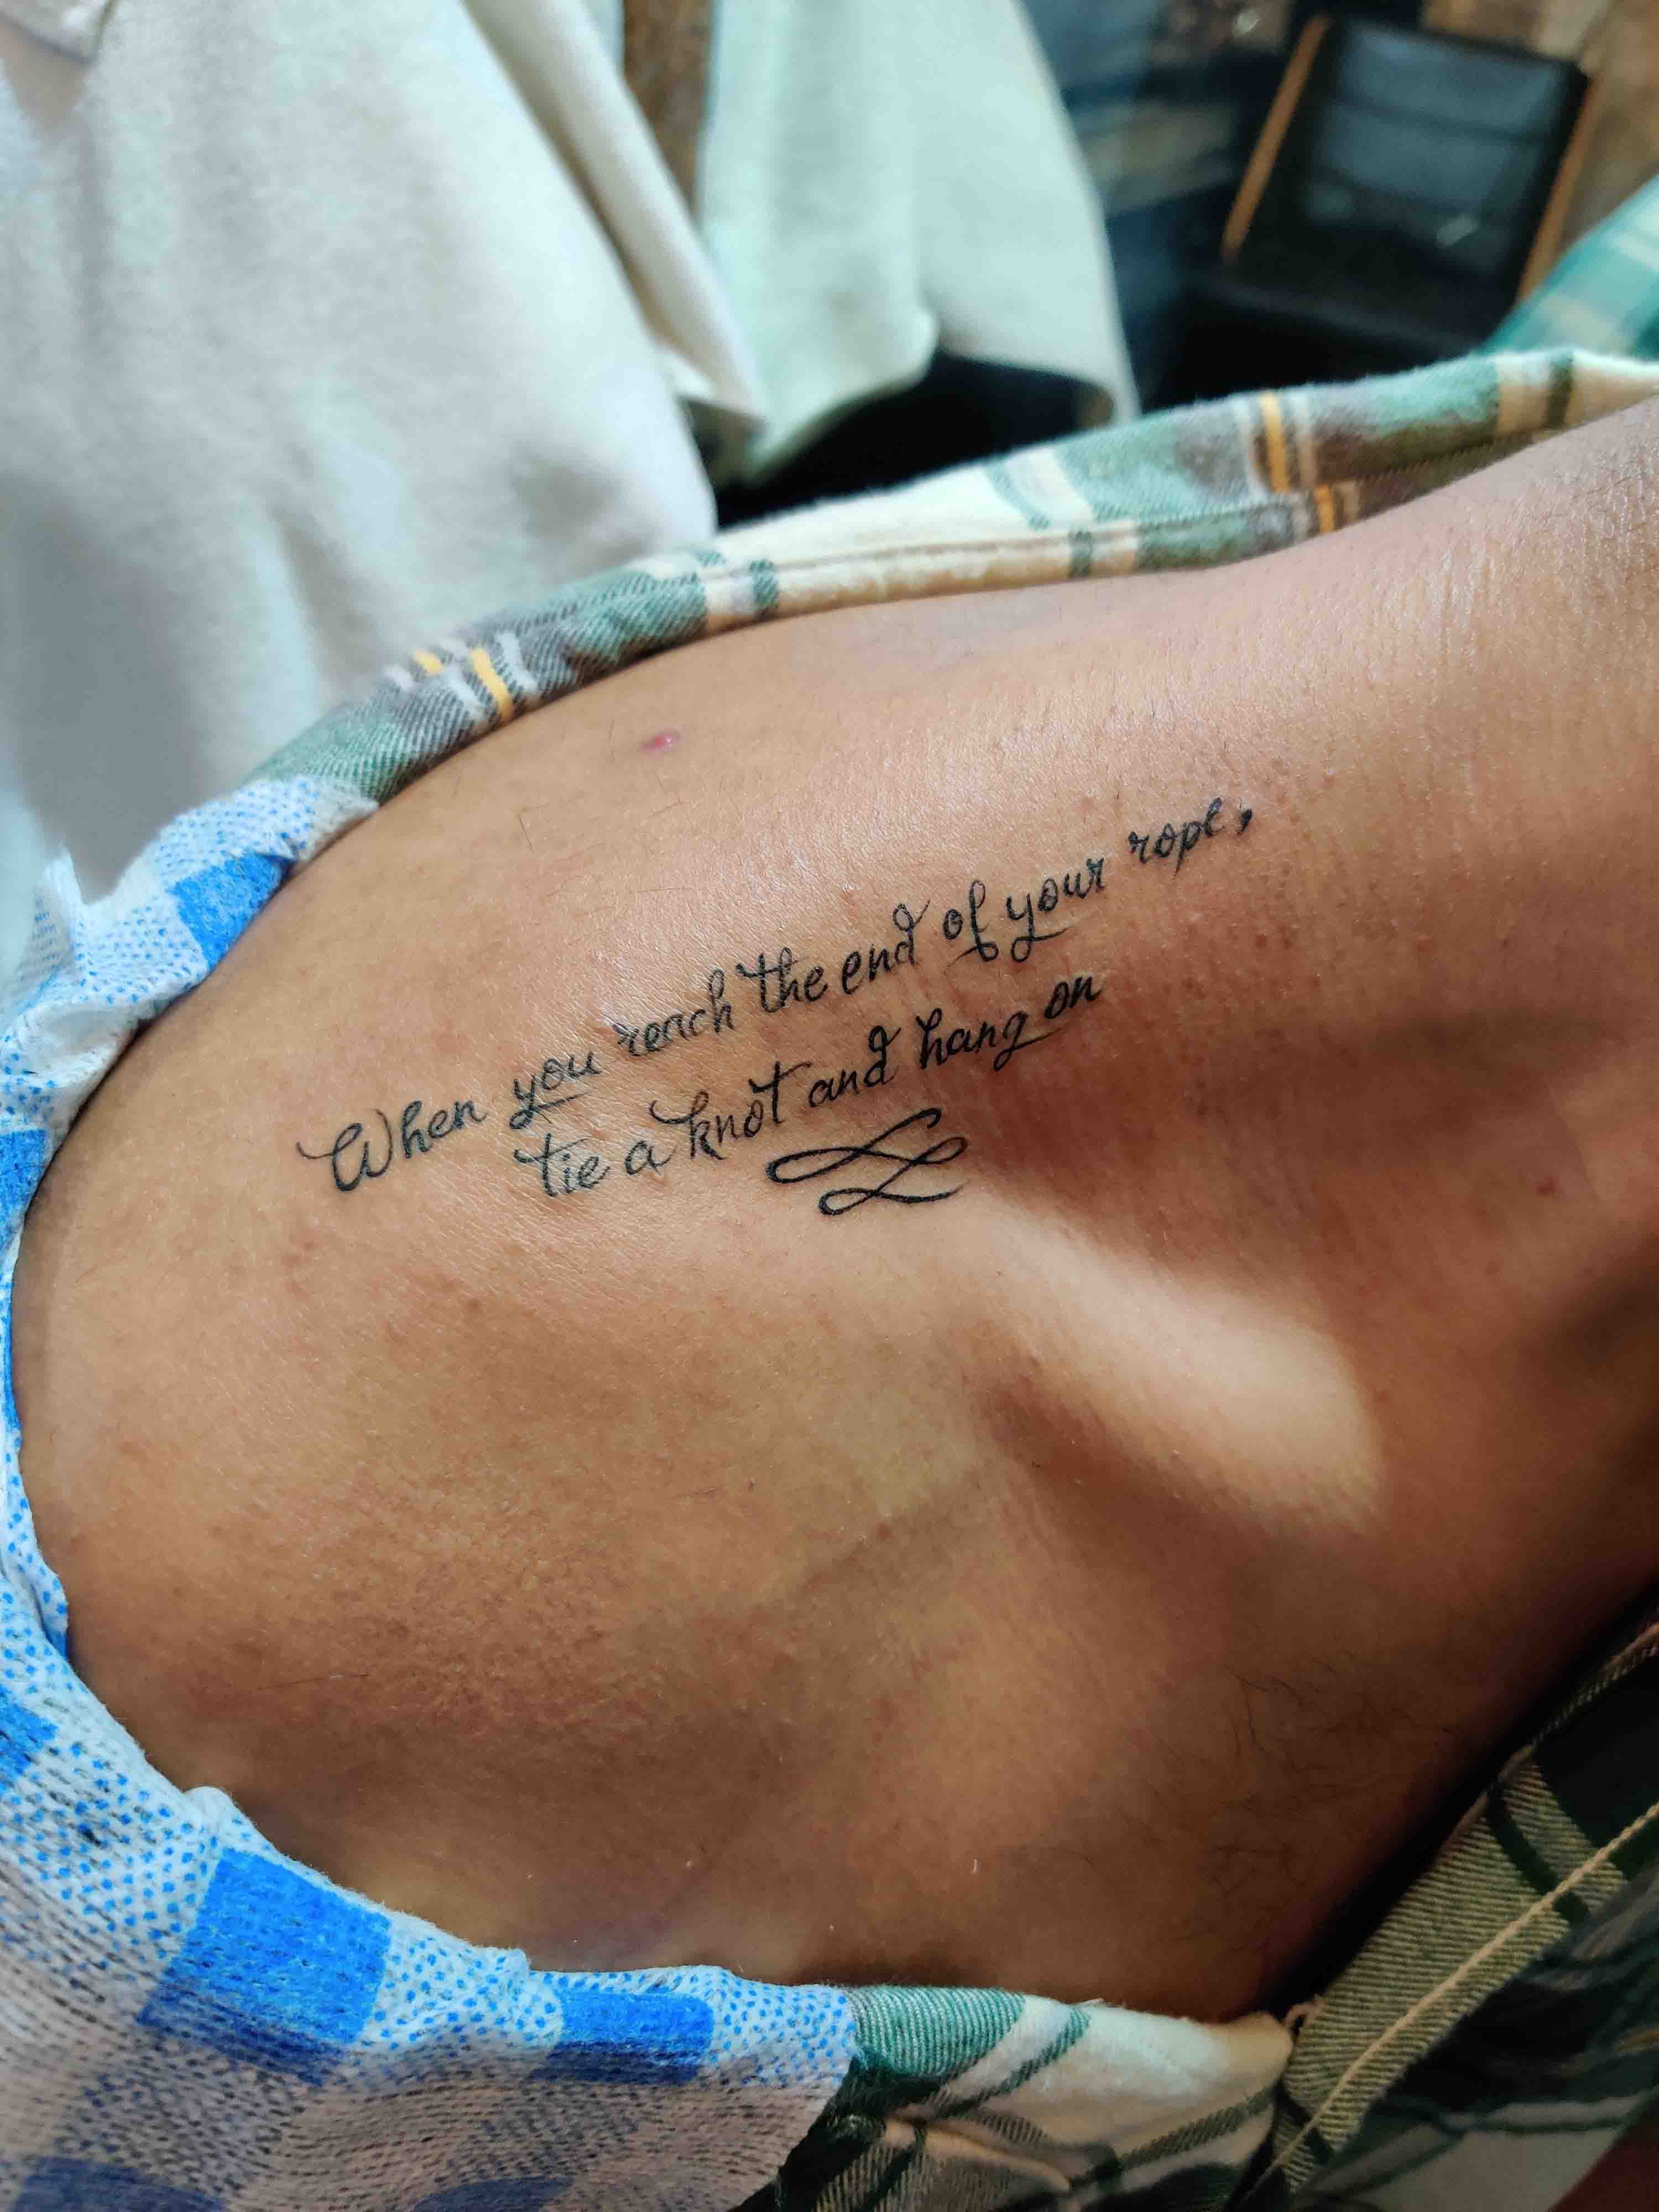 When you reach the end of your rope,
tie a knot and hang on